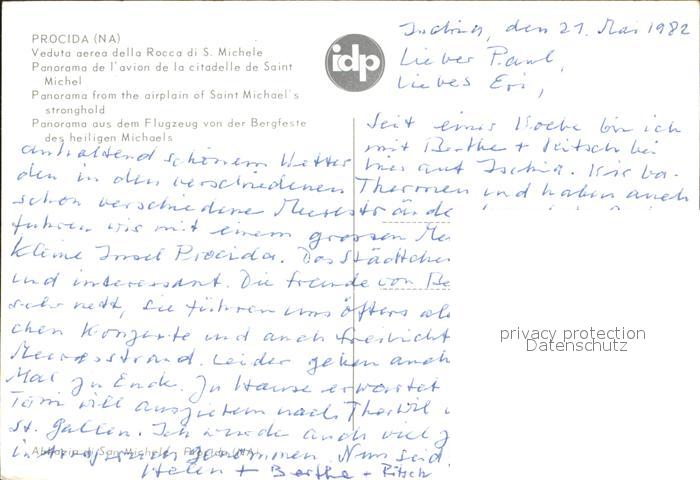 PROCIDA (NA)
Veduta aerea della Rocca di S. Michele
Panorama de l'avion de la citadelle de Saint
Michel
Panorama from the airplain of Saint Michael's
stronghold
Panorama aus dem Flugzeug von der Bergfeste
des heiligen Michaels
idp
Ischia, den 21. Mai 1982
Lieber Paul,
liebes Evi,
Seit einer Woche bin ich
mit Berthe + Ritsch bei
anhaltend schönem Wetter hier auf Ischia. Wir ba-
den in den verschiedenen Thermen und haben auch
schon verschiedene Meeresstrände
fuhren wir mit einem grossen
kleine Insel Procida. Das Städtchen
und interessant. Die Freunde von Be
sehr nett, sie führen uns öfters
chen Konzerte und auch Freilicht
Meeresstrand. Leider gehen auch
Mal zu Ende. Zu Hause erwartet
Tomi will ausziehen nach Therwil
St. Gallen. Ich wurde auch viel
in genommen. Nun seid
Helen + Berthe + Ritsch
Abbazia di San Michele - Procida (NA)
privacy protection
Datenschutz